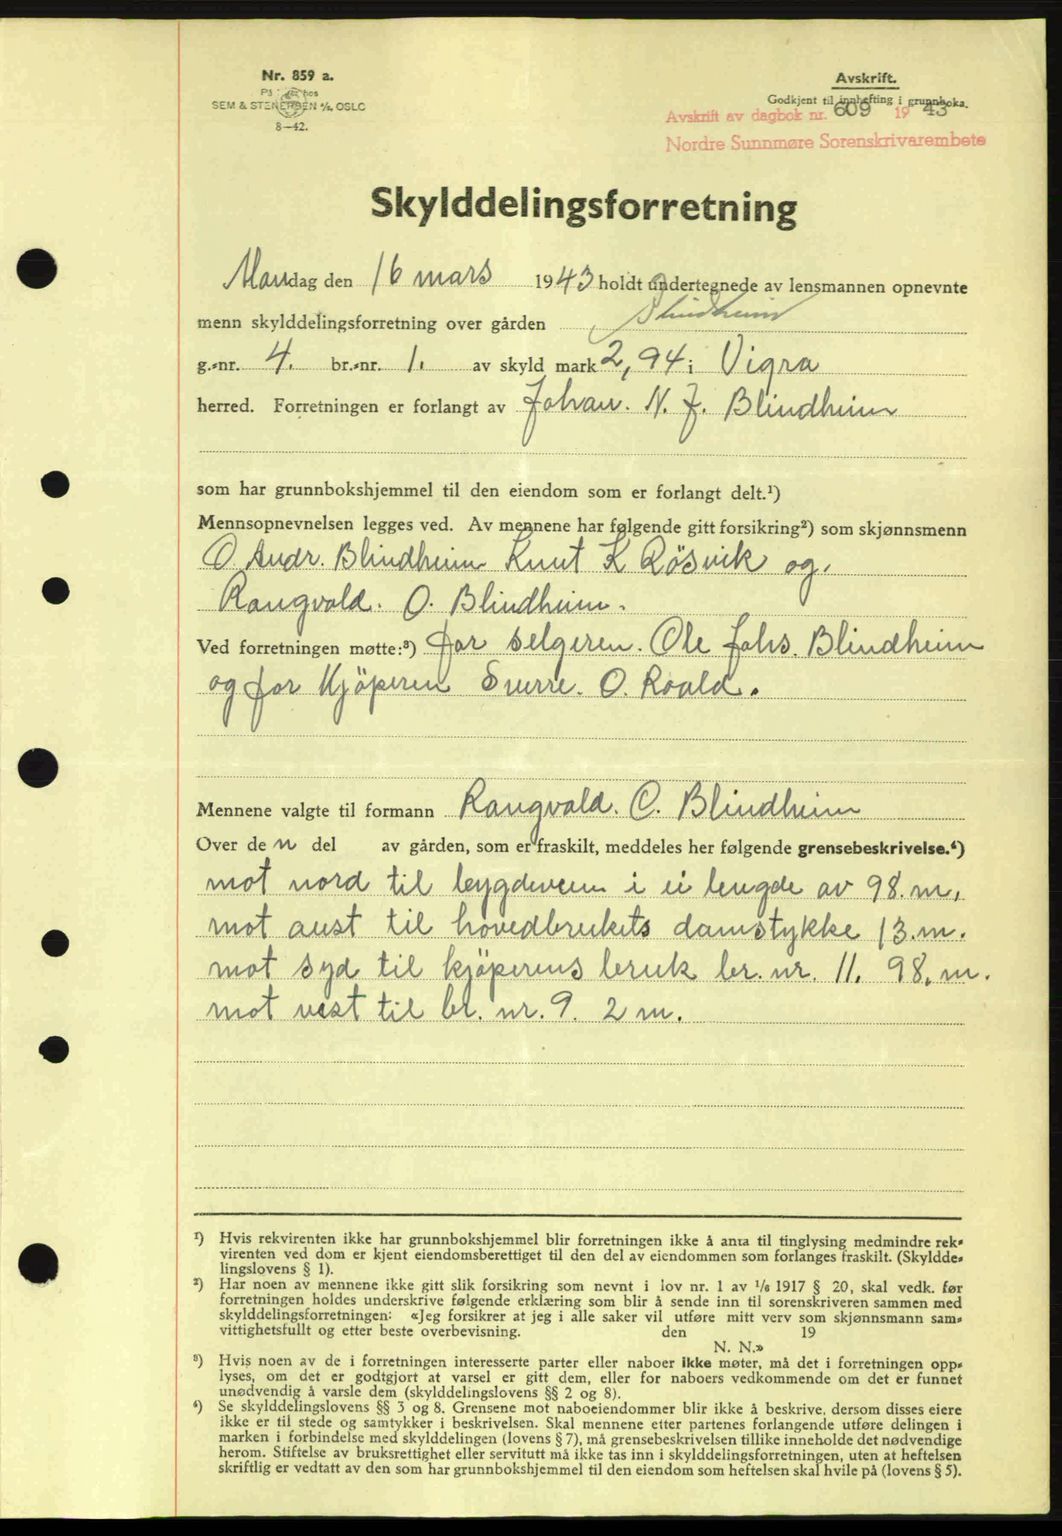 Nr. 859 a.
SEM & STENERSEN A/S, OSLO
8—42.
Avskrift.
Godkjent til innhefting i grunnboka.
Avskrift av dagbok nr. 609 1943
Nordre Sunnmøre Sorenskrivarembete
Skylddelingsforretning
Mandag den 16 mars 1943 holdt undertegnede av lensmannen opnevnte
menn skylddelingsforretning over gården Blindheim
g.-nr. 4. br.-nr. 1. av skyld mark 2,94 i Vigra
herred. Forretningen er forlangt av Johan. N. J. Blindheim
som har grunnbokshjemmel til den eiendom som er forlangt delt.¹)
Mennsopnevnelsen legges ved. Av mennene har følgende gitt forsikring²) som skjønnsmenn
O Andr. Blindheim Knut K Røsvik og.
Rangvald. O. Blindheim.
Ved forretningen møtte:³) for selgeren. Ole Johs. Blindheim
og for Kjöperen Sverre. O. Roald.
Mennene valgte til formann Rangvald. O. Blindheim
Over de n del av gården, som er fraskilt, meddeles her følgende grensebeskrivelse.⁴)
mot nord til bygdeveien i ei lengde av 98. m,
mot aust til hovedbrukets damstykke 13. m.
mot syd til kjöperens bruk br. nr. 11. 98. m.
mot vest til br. nr. 9. 2 m.
¹) Hvis rekvirenten ikke har grunnbokshjemmel blir forretningen ikke å anta til tinglysing medmindre rek-
virenten ved dom er kjent eiendomsberettiget til den del av eiendommen som forlanges fraskilt. (Skyldde-
lingslovens § 1).
²) Har noen av mennene ikke gitt slik forsikring som nevnt i lov nr. 1 av 1/6 1917 § 20, skal vedk. før
forretningen holdes underskrive følgende erklæring som blir å sende inn til sorenskriveren sammen med
skylddelingsforretningen: «Jeg forsikrer at jeg i alle saker vil utføre mitt verv som skjønnsmann sam-
vittighetsfullt og etter beste overbevisning. den 19
N. N.»
³) Hvis noen av de i forretningen interesserte parter eller naboer ikke møter, må det i forretningen opp-
lyses, om det er godtgjort at varsel er gitt dem, eller for naboers vedkommende om det er funnet
unødvendig å varsle dem (skylddelingslovens §§ 2 og 8).
⁴) Se skylddelingslovens §§ 3 og 8. Grensene mot naboeiendommer blir ikke å beskrive, dersom disses eiere
ikke er til stede og samtykker i beskrivelsen. Skal mennene etter partenes forlangende utføre delingen i
marken i forbindelse med skylddelingen (lovens § 7), må grensebeskrivelsen tillike inneholde det nødvendige
herom. Stiftelse av bruksrettighet eller servitutt må ikke tas inn i skylddelingsforretningen, uten at heftelsen
skriftlig er vedtatt av den som har grunnbokshjemmel til den eiendom som heftelsen skal hvile på (lovens § 5).